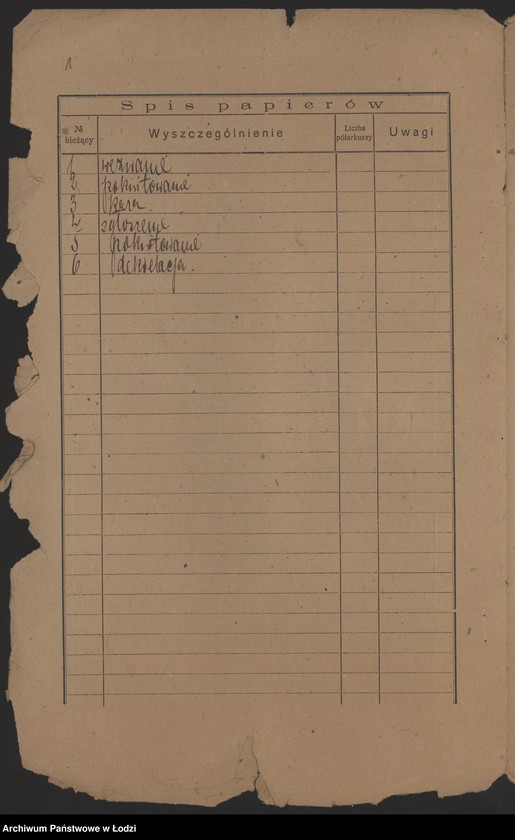 1
Spis papierów
№ bieżący Wyszczególnienie Liczba półarkuszy Uwagi
1 wezwanie
2 pokwitowanie
3 kara
4 zgłoszenie
5 pokwitowanie
6 deklaracja.
Archiwum Państwowe w Łodzi